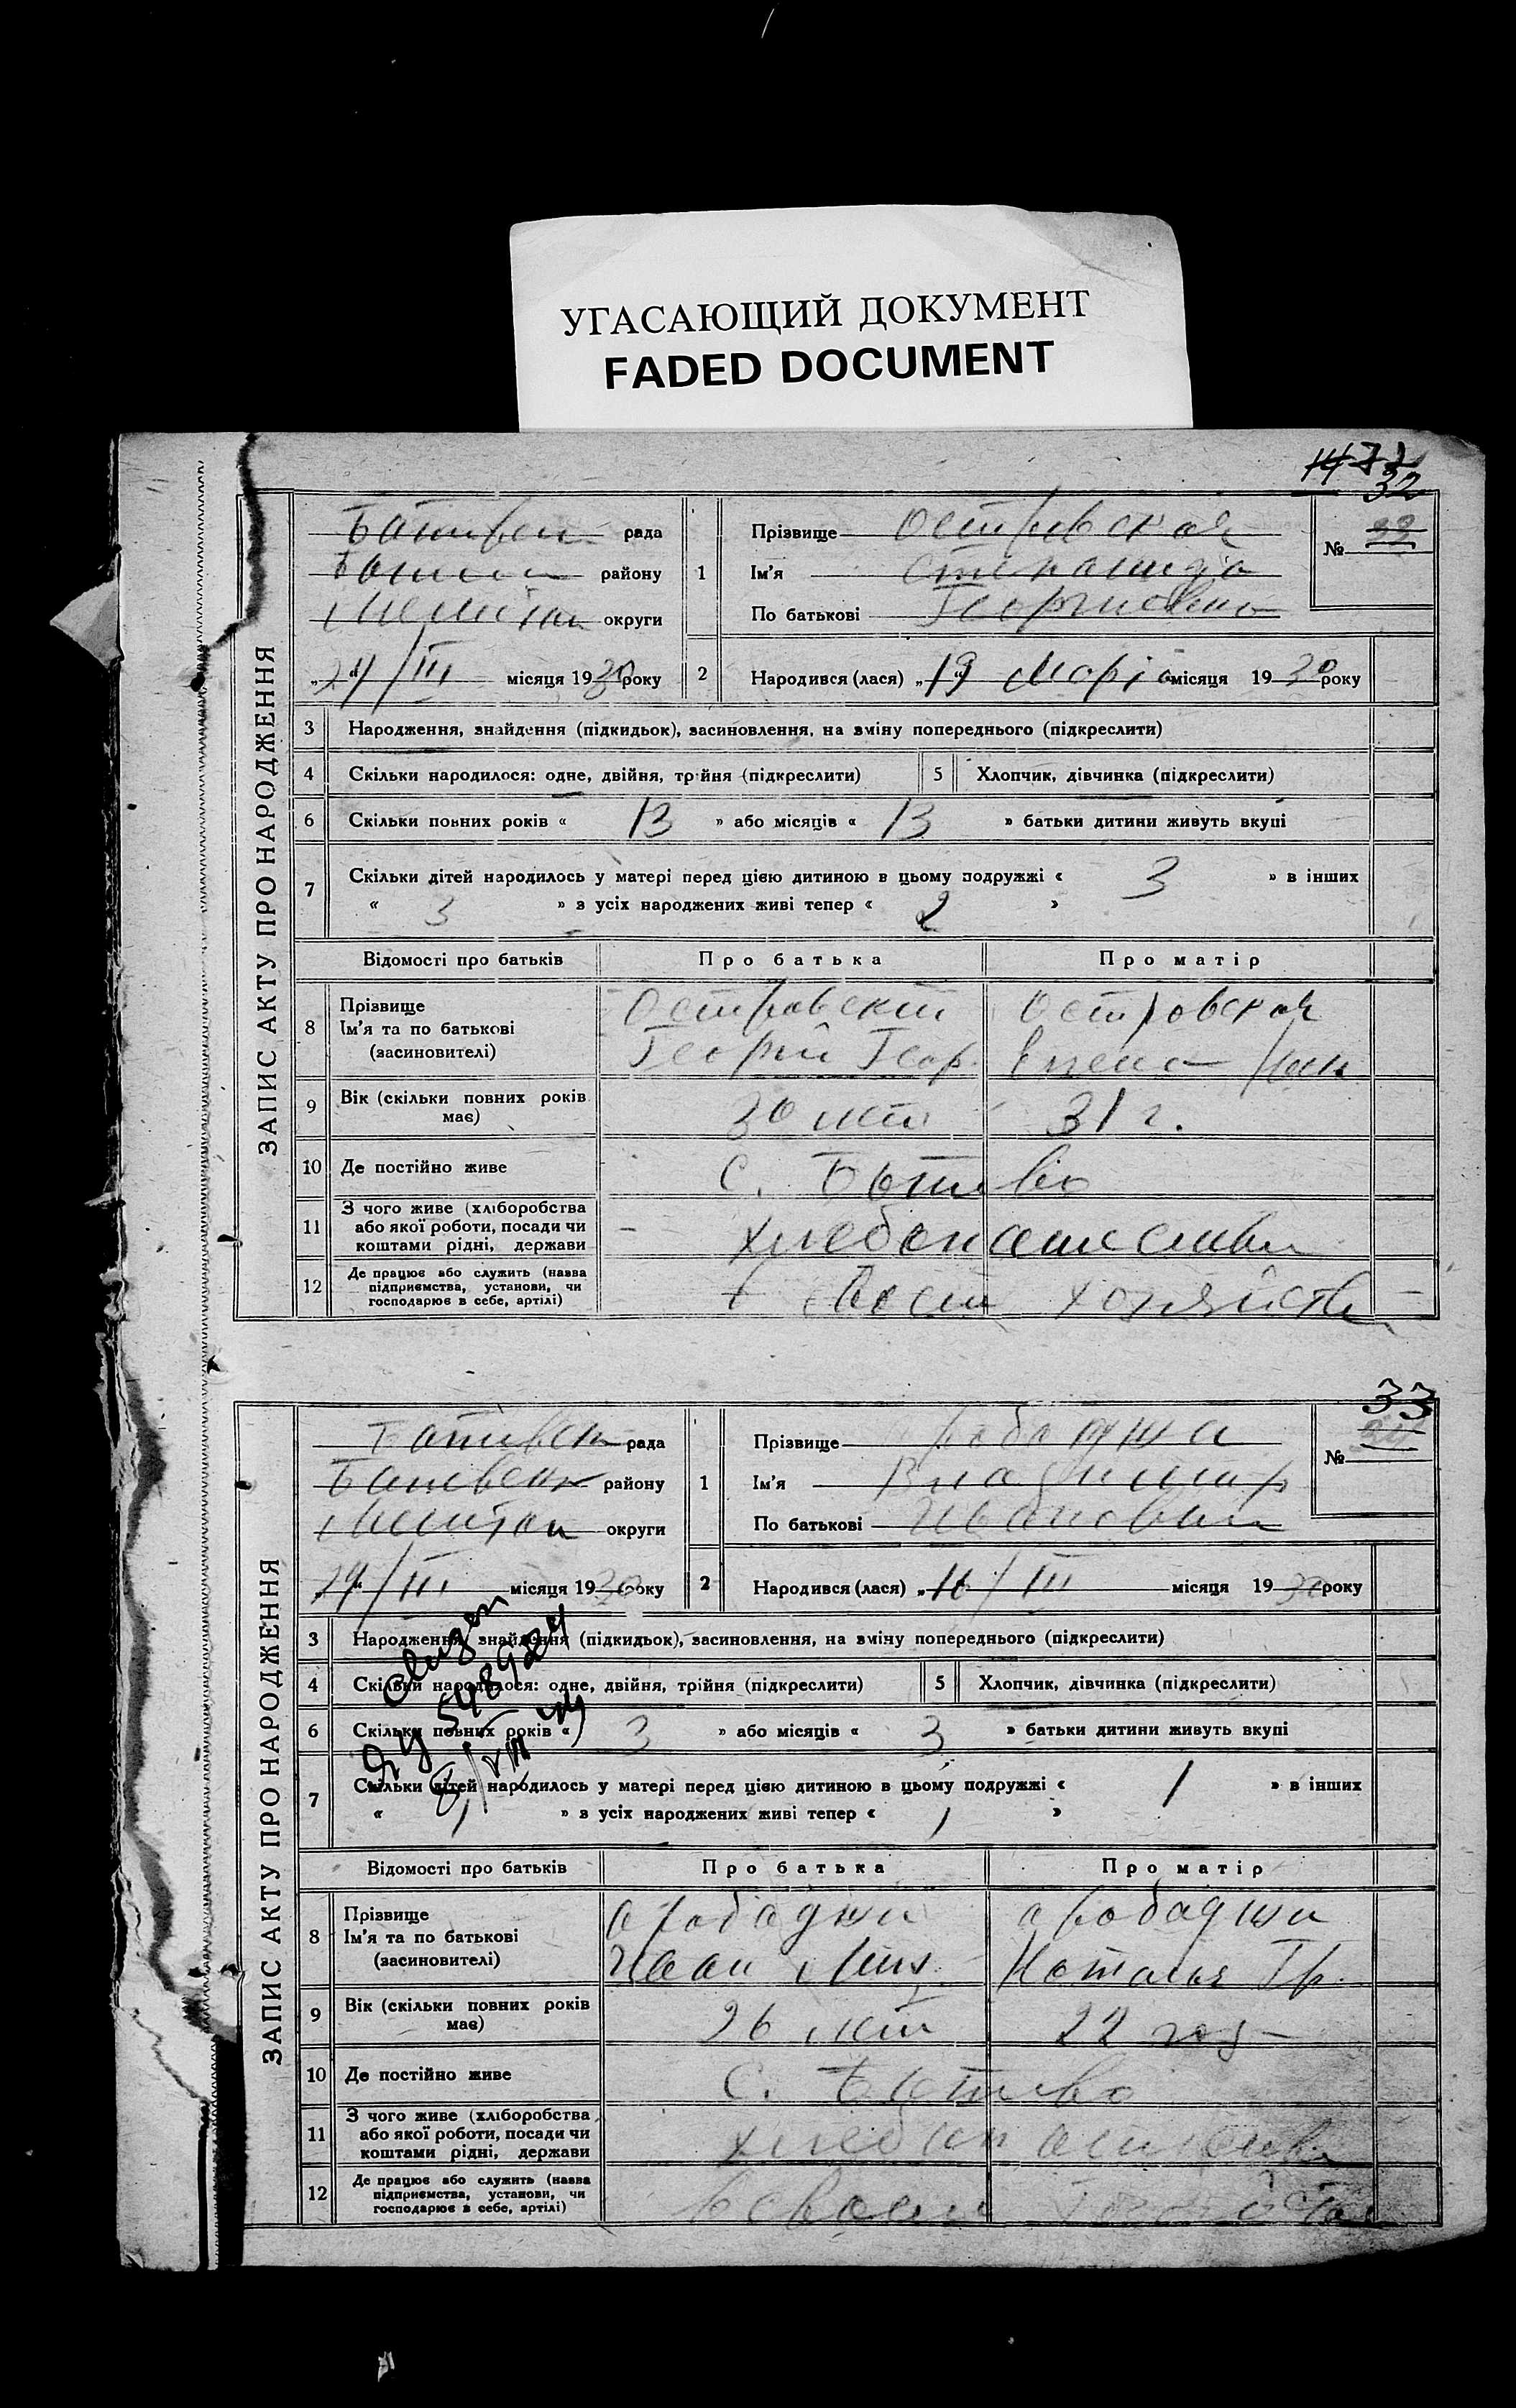 УГАСАЮЩИЙ ДОКУМЕНТ
FADED DOCUMENT
32
ЗАПИС АКТУ ПРО НАРОДЖЕННЯ
рада
району
округи
24/III місяця 1930 року
1
Прізвище Островская
Ім'я Степанида
По батькові Георгиевна
№
2
Народився (лася) „19 Марта місяця 1930 року
3 Народження, знайдення (підкидьок), засиновлення, на зміну попереднього (підкреслити)
4 Скільки народилося: одне, двійня, трійня (підкреслити) 5 Хлопчик, дівчинка (підкреслити)
6 Скільки повних років « 13 » або місяців « 13 » батьки дитини живуть вкупі
7 Скільки дітей народилось у матері перед цією дитиною в цьому подружжі « 3 » в інших
« 3 » з усіх народжених живі тепер « 2 »
Відомості про батьків Про батька Про матір
8 Прізвище
Ім'я та по батькові
(засиновителі)
Островский Островская
Георгий Геор. Елена
9 Вік (скільки повних років
має)
30 лет 31 г.
10 Де постійно живе
С.
11 З чого живе (хліборобства
або якої роботи, посади чи
коштами рідні, держави
хлебопашеством
12 Де працює або служить (назва
підприємства, установи, чи
господарює в себе, артілі)
в своем хозяйстве
33
ЗАПИС АКТУ ПРО НАРОДЖЕННЯ
рада
району
округи
24/III місяця 1930 року
1
Прізвище
Ім'я Владимир
По батькові Иванович
№
2
Народився (лася) „ /III місяця 1930 року
3 Народження, знайдення (підкидьок), засиновлення, на зміну попереднього (підкреслити)
4 Скільки народилося: одне, двійня, трійня (підкреслити) 5 Хлопчик, дівчинка (підкреслити)
6 Скільки повних років « 3 » або місяців « 3 » батьки дитини живуть вкупі
7 Скільки дітей народилось у матері перед цією дитиною в цьому подружжі « 1 » в інших
« 1 » з усіх народжених живі тепер « 1 »
Відомості про батьків Про батька Про матір
8 Прізвище
Ім'я та по батькові
(засиновителі)
Арабаджи Арабаджи
Иван Мих. Наталья Гр.
9 Вік (скільки повних років
має)
26 лет 22 год
10 Де постійно живе
С.
11 З чого живе (хліборобства
або якої роботи, посади чи
коштами рідні, держави
хлебопашеством
12 Де працює або служить (назва
підприємства, установи, чи
господарює в себе, артілі)
в своем